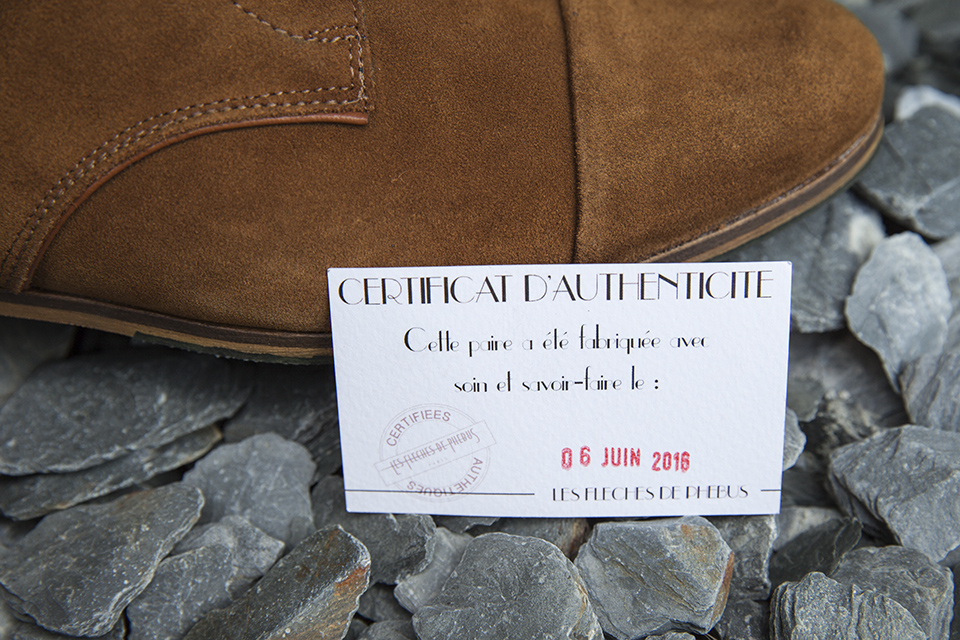 CERTIFICAT D'AUTHENTICITE
Cette paire a été fabriquée avec
soin et savoir-faire le :
CERTIFIEES
LES FLECHES DE PHEBUS
PARIS
AUTHETIQUES
06 JUIN 2016
LES FLECHES DE PHEBUS